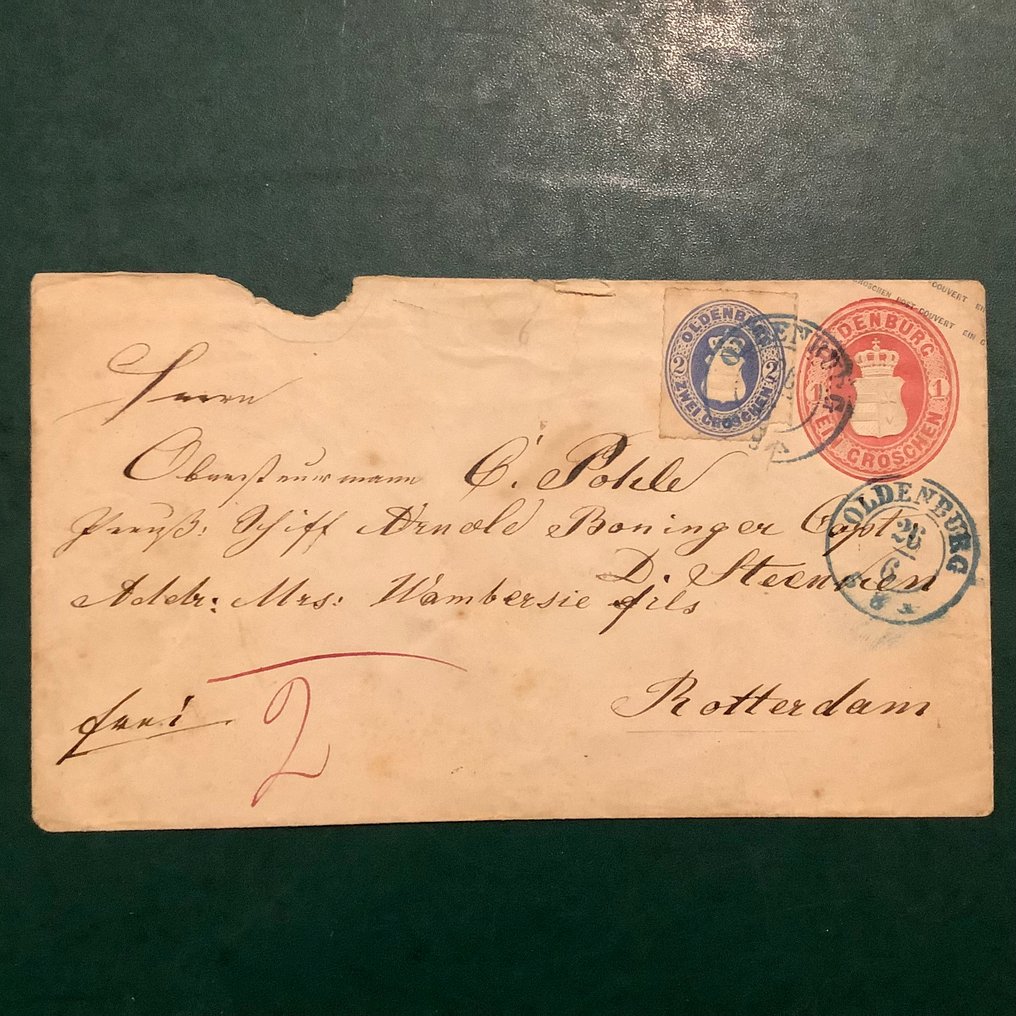 GROSCHEN POST-COUVERT EIN G
COUVERT EIN
OLDENBURG
2 2
ZWEI GROSCHEN
OLDENBURG
1 1
EIN GROSCHEN
OLDENBURG
26
6
OLDENBURG
26
6
Herrn
Obersteuermann C. Pohle
Preuß: Schiff Arnold Boninger Capt
D. Steenken
Addr: Mrs: Wambersie fils
Rotterdam
frei
2